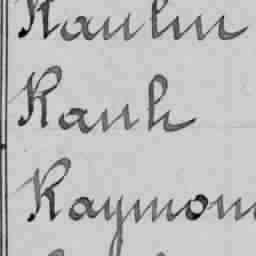 Kaulin
Kauh
Raymon